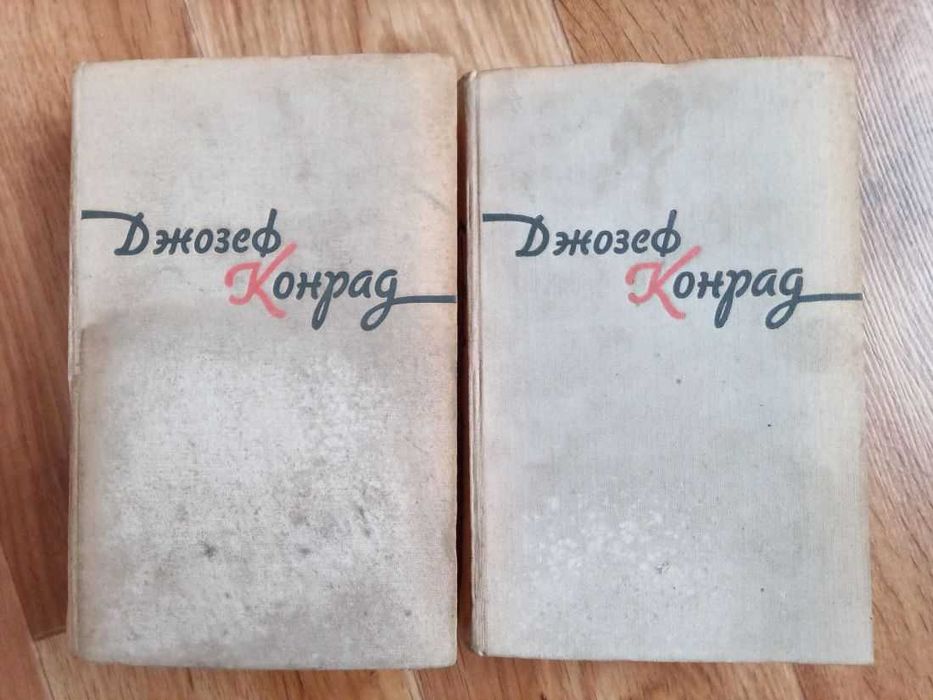 Джозеф
Конрад
Джозеф
Конрад